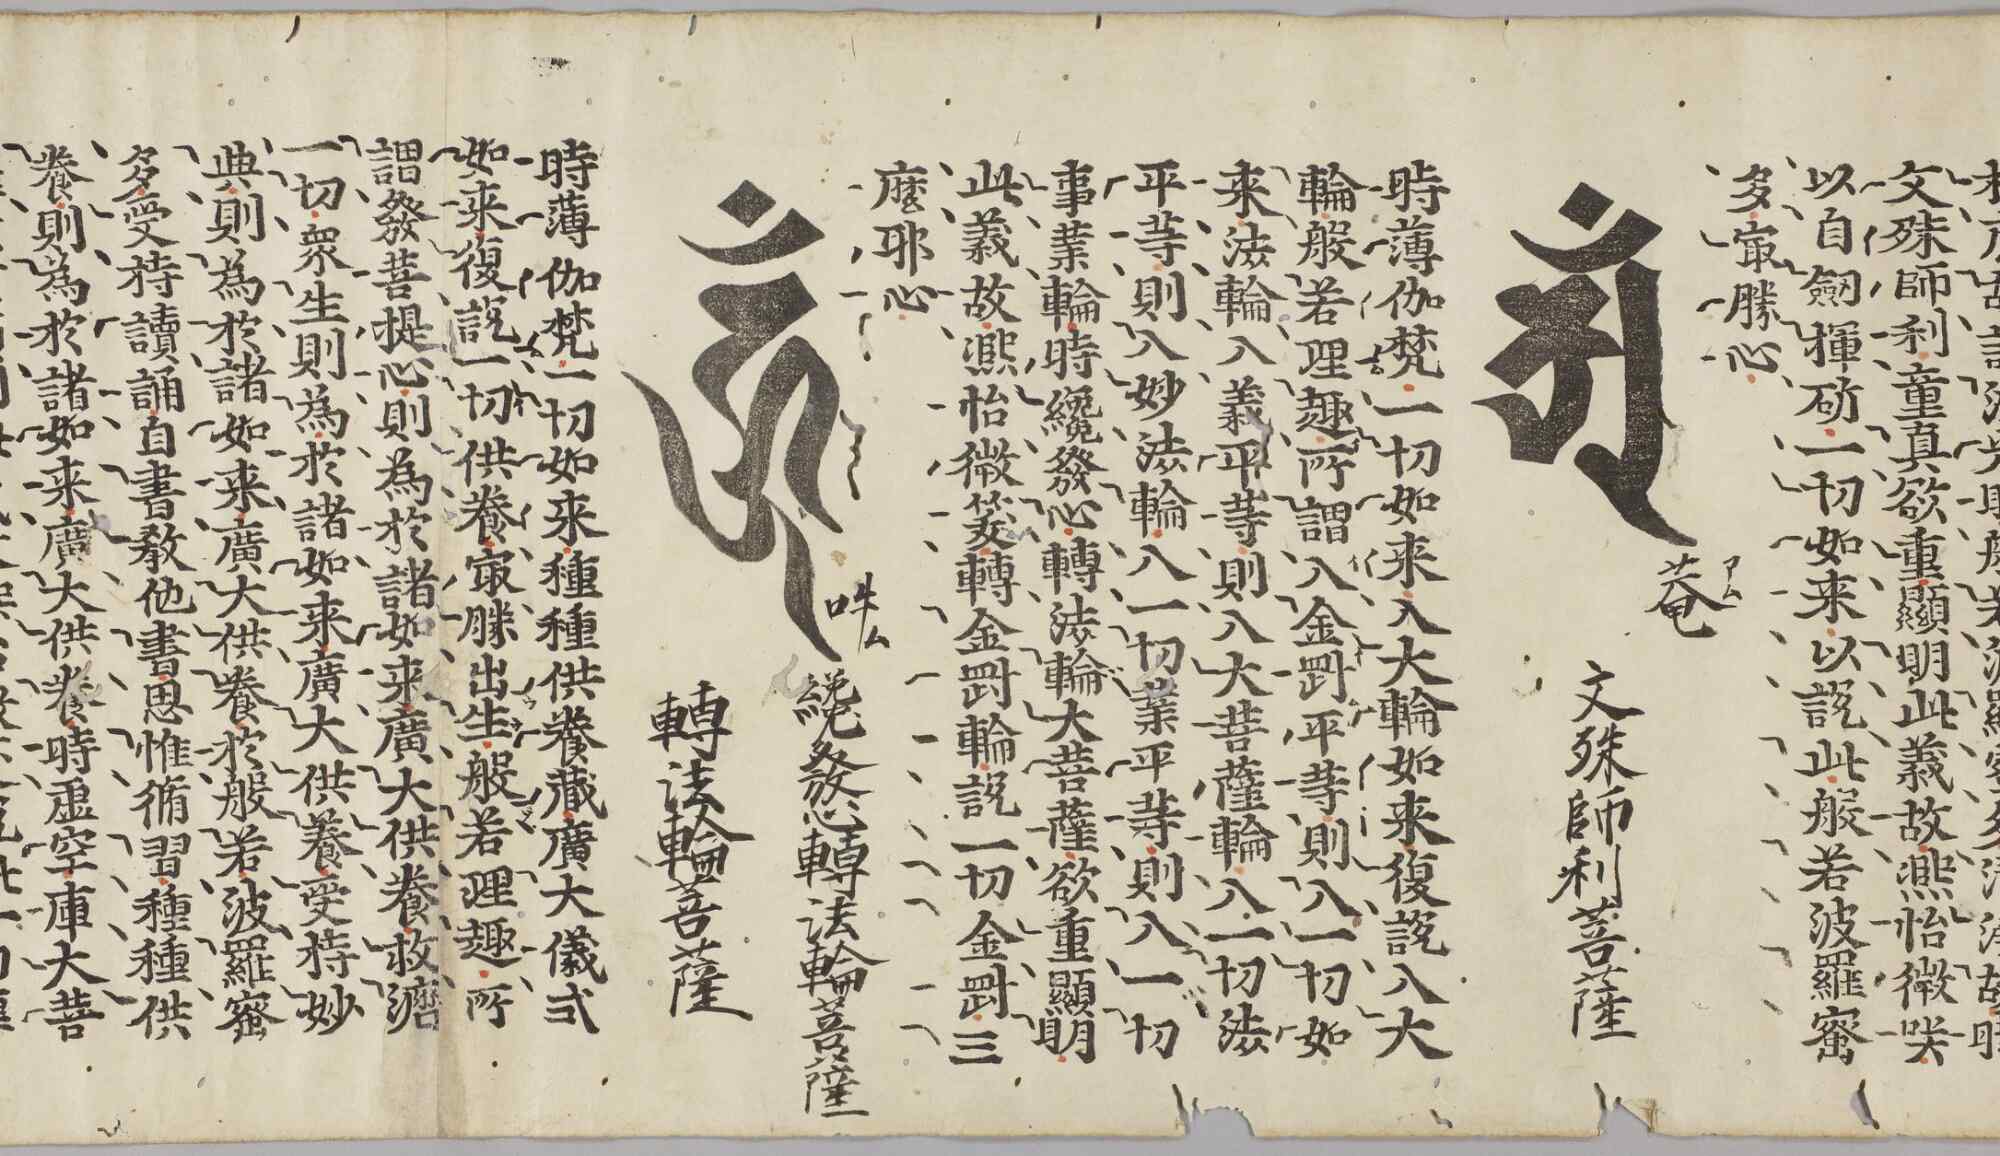 文殊師利童真欲重顯明此義故凞怡微咲
以自劒揮斫一切如来以説此般若波羅蜜
多㝡勝心
𑖀𑖽
アム
菴
文殊師利菩薩
時薄伽梵一切如来入大輪如来復説入大
輪般若理趣所謂入金剛平等則入一切如
来法輪入義平等則入大菩薩輪入一切法
平等則入妙法輪入一切業平等則入一切
事業輪時纔發心轉法輪大菩薩欲重顯明
此義故凞怡微笑轉金剛輪説一切金剛三
麼耶心
𑖮𑖳𑖽
吽
ム
纔發心轉法輪菩薩
轉法輪菩薩
時薄伽梵一切如来種種供養藏廣大儀式
如来復説一切供養㝡勝出生般若理趣所
謂發菩提心則為於諸如来廣大供養救濟
一切衆生則為於諸如来廣大供養受持妙
典則為於諸如来廣大供養於般若波羅蜜
多受持讀誦自書教他書思惟脩習種種供
養則為於諸如来廣大供養時虚空庫大菩